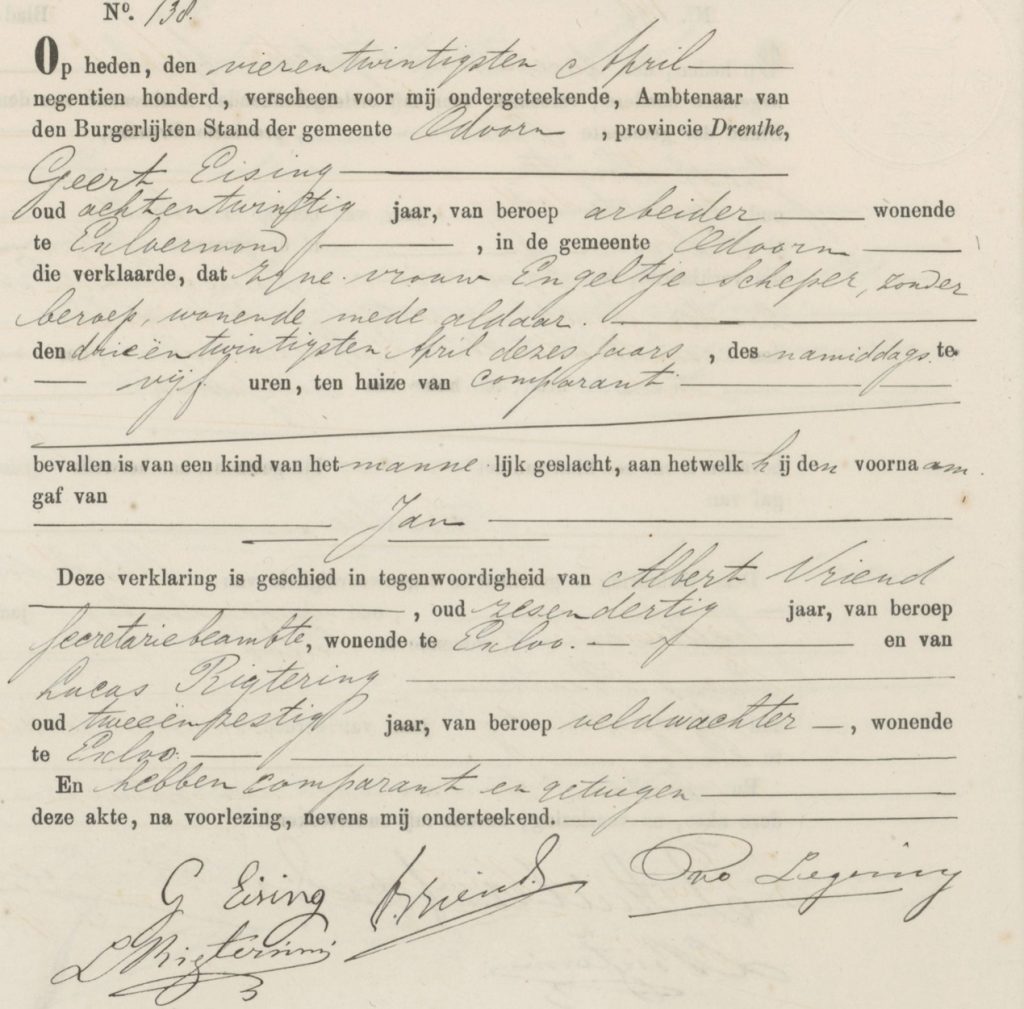 No. 138.
Op heden, den vierentwintigsten April
negentien honderd, verscheen voor mij ondergeteekende, Ambtenaar van
den Burgerlijken Stand der gemeente Odoorn, provincie Drenthe,
Geert Eising
oud achtentwintig jaar, van beroep arbeider wonende
te Exloermond, in de gemeente Odoorn
die verklaarde, dat zijne vrouw Engeltje Scheper, zonder
beroep, wonende mede aldaar.
den drieëntwintigsten April dezes jaars, des namiddags te
vijf uren, ten huize van comparant
bevallen is van een kind van het mannelijk geslacht, aan hetwelk hij den voornaam
gaf van
Jan
Deze verklaring is geschied in tegenwoordigheid van Albert Vriend
, oud zesendertig jaar, van beroep
secretariebeambte, wonende te Exloo. en van
Lucas Rigtering
oud tweeënzestig jaar, van beroep veldwachter, wonende
te Exloo.
En hebben comparant en getuigen
deze akte, na voorlezing, nevens mij onderteekend.
G Eising AVriend
L Rigtering